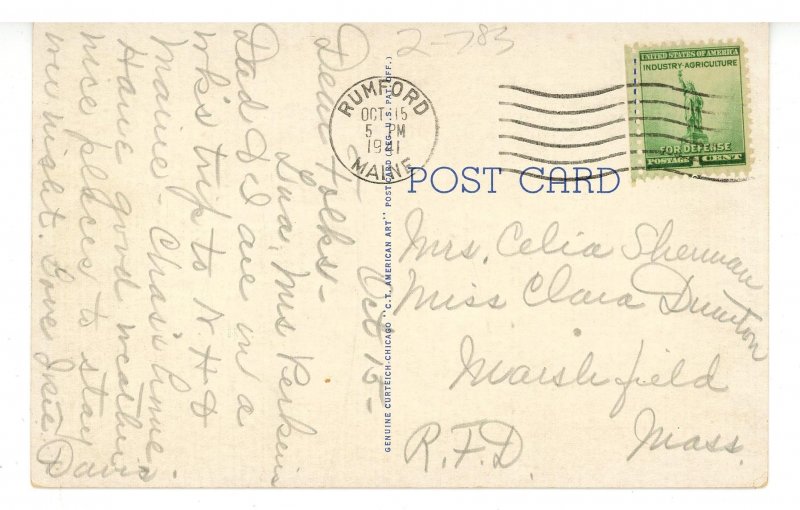 2-783
Oct 15-
Dear Folks-
Mrs Perkins
Dad & I are in a
wk's trip to N.H &
Maine-
Have good weather
nice places to stay
over night. Love
Davis
GENUINE CURTEICH-CHICAGO "C.T. AMERICAN ART" POST CARD (REG. U.S. PAT. OFF.)
RUMFORD
OCT 15
5 PM
1941
MAINE
UNITED STATES OF AMERICA
INDUSTRY-AGRICULTURE
FOR DEFENSE
POSTAGE 1 CENT
POST CARD
Mrs. Celia Sherman
Miss Clara
Marshfield
R.F.D. Mass.